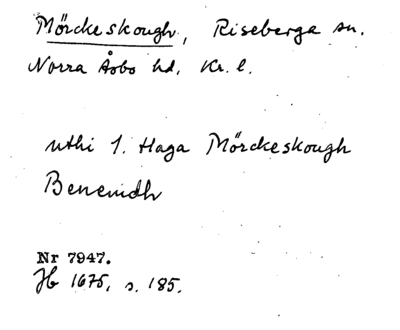 Mörckeskough, Riseberga sn.
Norra Åsbo hd, Kr. l.
uthi 1. Haga Mörckeskough
Benemdh
Nr 7947.
Jb 1675, s. 185.